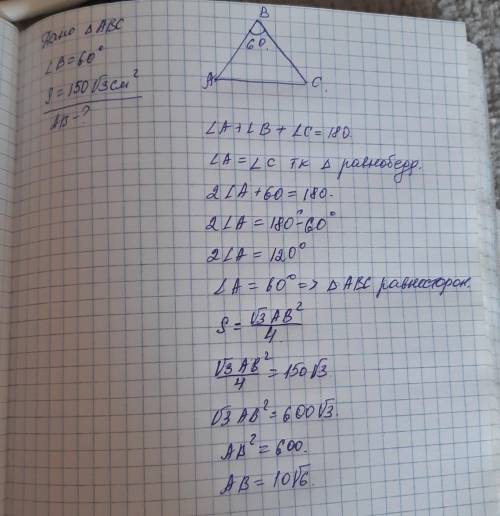 Дано △ABC
∠B=60°
S=150√3см²
AB-?
B
60°
A
C
∠A+∠B+∠C=180.
∠A=∠C тк △ равнобедр.
2∠A+60=180.
2∠A=180°-60°
2∠A=120°
∠A=60°=> △ABC равносторон.
S=√3AB²/4
√3AB²/4=150√3
√3AB²=600√3.
AB²=600.
AB=10√6.